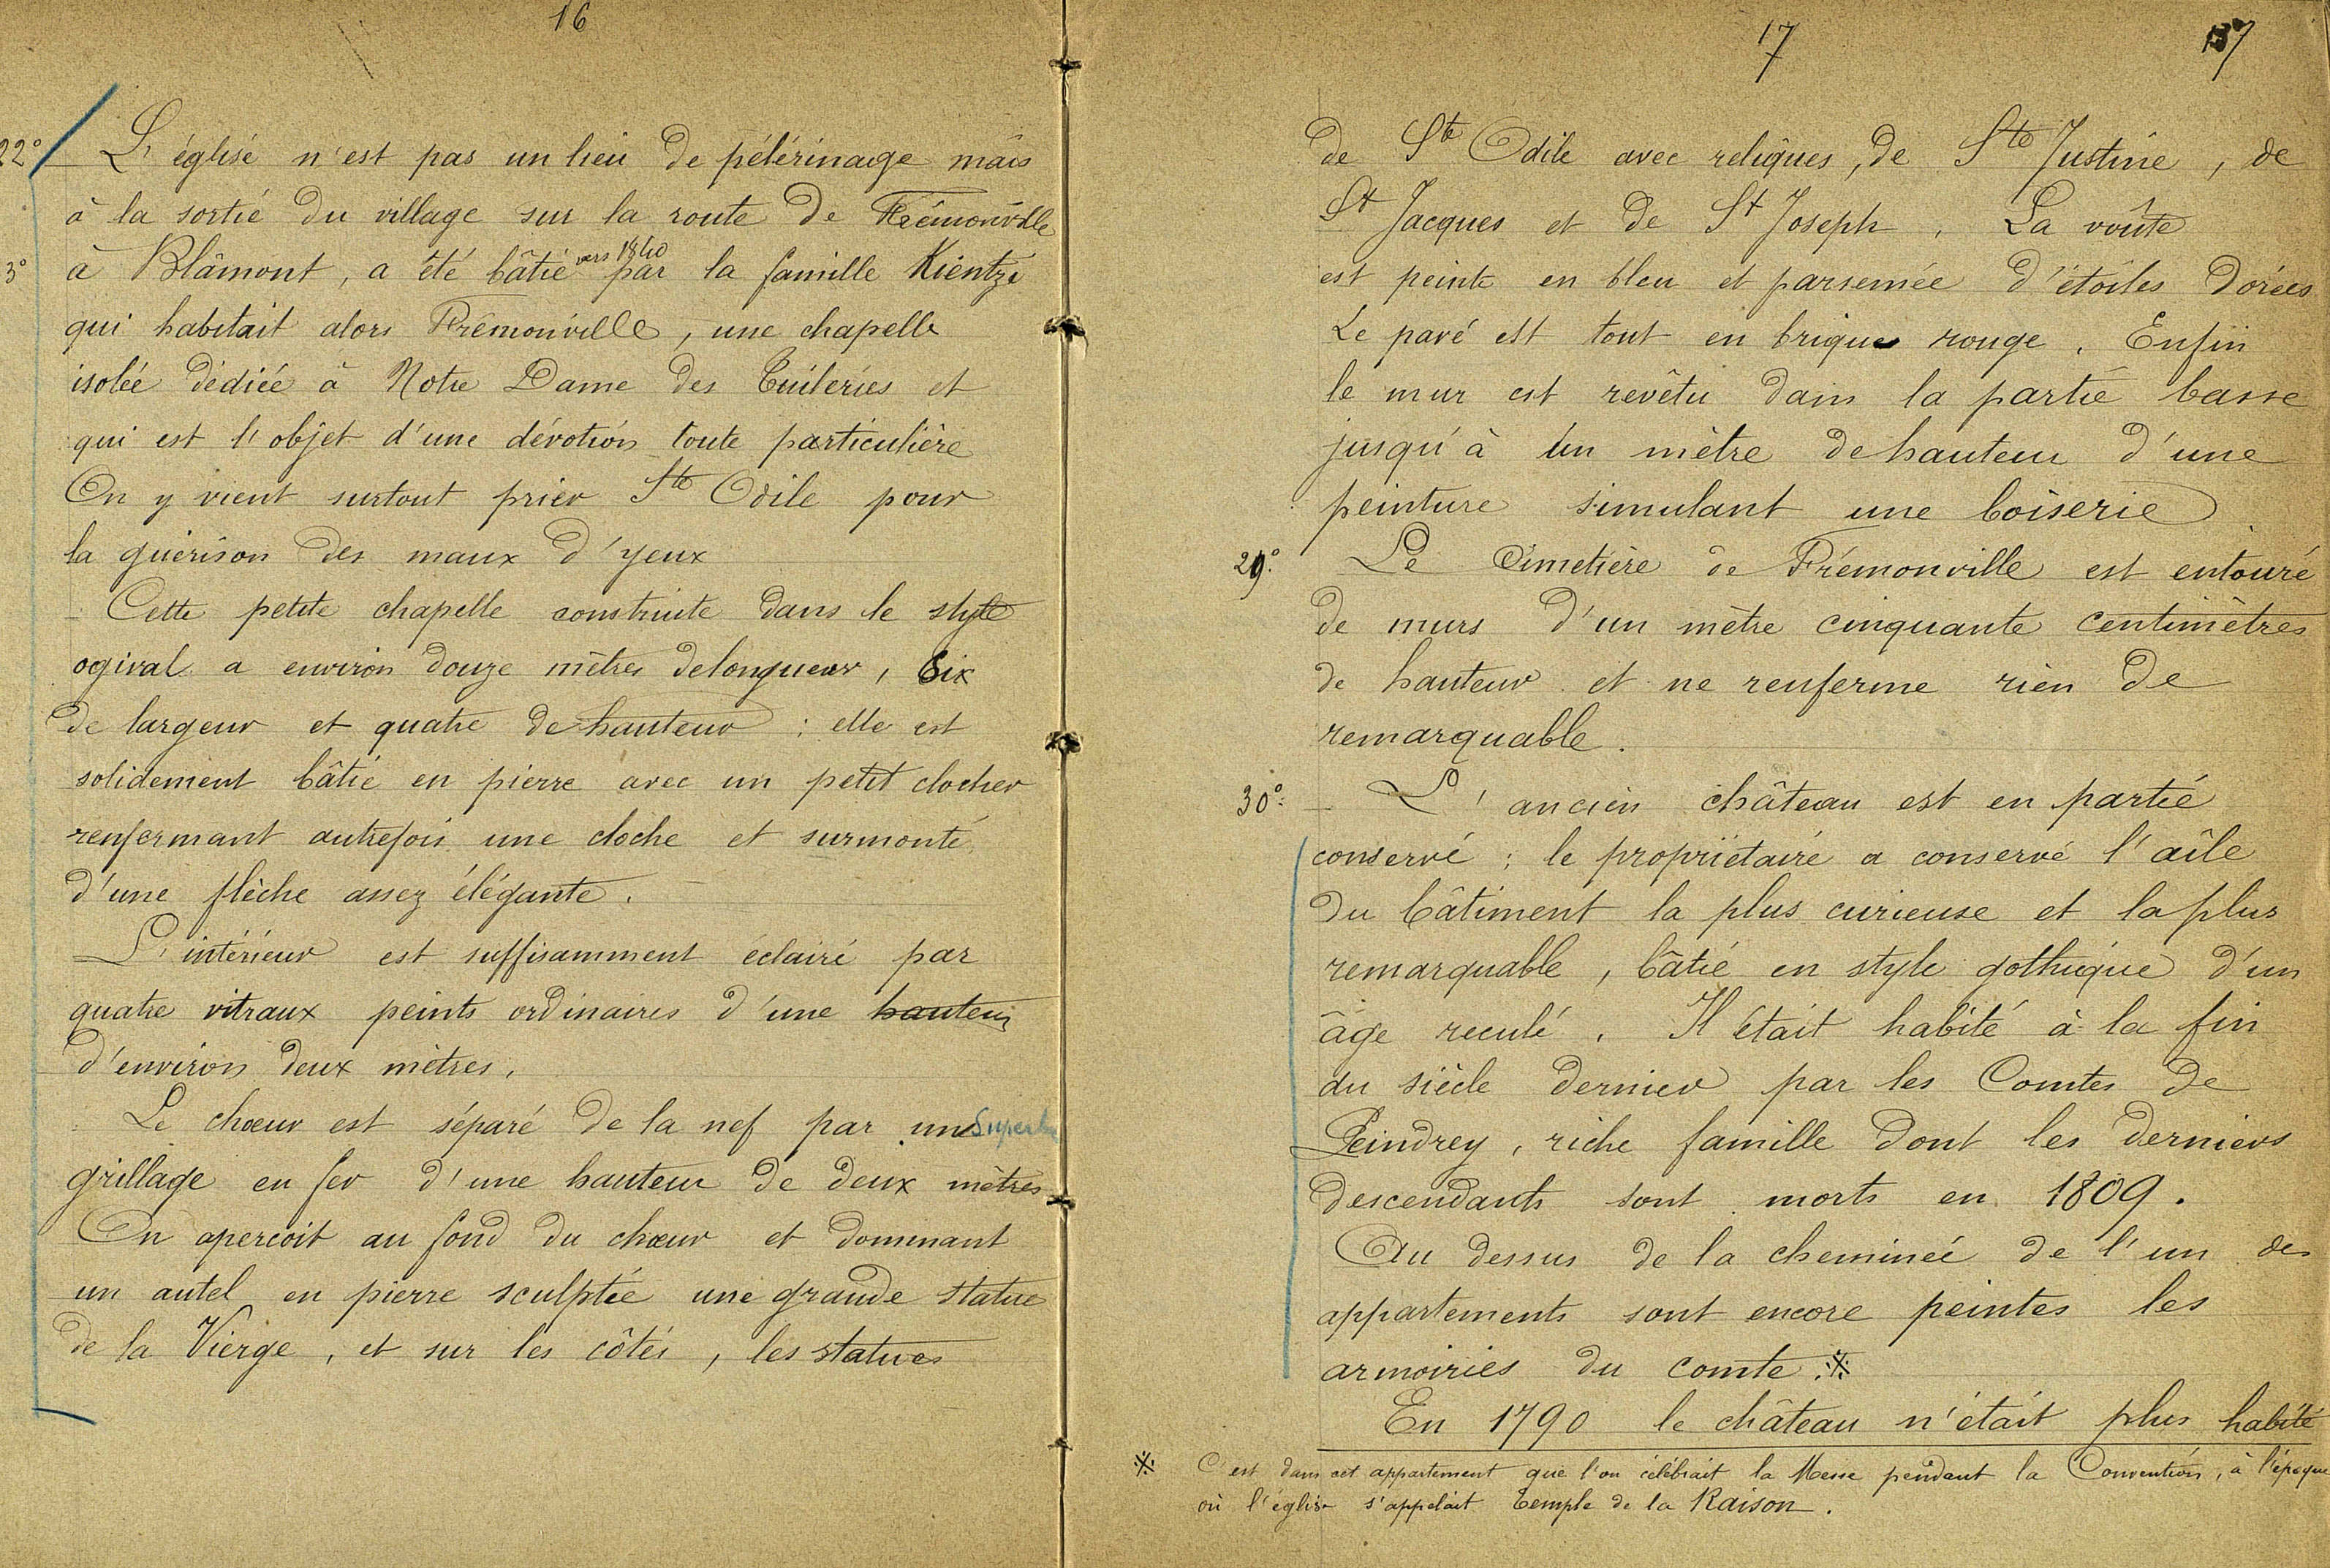 16
22° L'église n'est pas un lieu de pélérinage mais
à la sortie du village sur la route de Frémonville
3° à Blâmont, a été bâtie vers 1840 par la famille Kientzi
qui habitait alors Frémonville, une chapelle
isolée dédiée à Notre Dame des Tuileries et
qui est l'objet d'une dévotion toute particulière
On y vient surtout prier Ste Odile pour
la guérison des maux d'yeux
Cette petite chapelle construite dans le style
ogival a environ douze mètres de longueur, six
de largeur et quatre de hauteur : elle est
solidement bâtie en pierre avec un petit clocher
renfermant autrefois une cloche et surmonté
d'une flèche assez élégante.
L'intérieur est suffisamment éclairé par
quatre vitraux peints ordinaires d'une hauteur
d'environ deux mètres.
Le chœur est séparé de la nef par un superbe
grillage en fer d'une hauteur de deux mètres
On apercoit au fond du chœur et dominant
un autel en pierre sculptée une grande statue
de la Vierge, et sur les côtés, les statues
17
de Ste Odile avec reliques, de Ste Justine, de
St Jacques et de St Joseph. La voûte
est peinte en bleu et parsemée d'étoiles dorées
Le pavé est tout en brique rouge. Enfin
le mur est revêtu dans la partie basse
jusqu'à un mètre de hauteur d'une
peinture simulant une boiserie
29° Le Cimetière de Frémonville est entouré
de murs d'un mètre cinquante centimètres
de hauteur et ne renferme rien de
remarquable.
30° L'ancien château est en partie
conservé ; le propriétaire a conservé l'aîle
du bâtiment la plus curieuse et la plus
remarquable, bâtie en style gothique d'un
âge reculé. Il était habité à la fin
du siècle dernier par les Comtes de
Leindrey, riche famille dont les derniers
descendants sont morts en 1809.
Au dessus de la cheminée de l'un des
appartements sont encore peintes les
armoiries du comte. ※
En 1790 le château n'était plus habité
※ C'est dans cet appartement que l'on célébrait la Messe pendant la Convention, à l'époque
où l'église s'appelait Temple de la Raison.